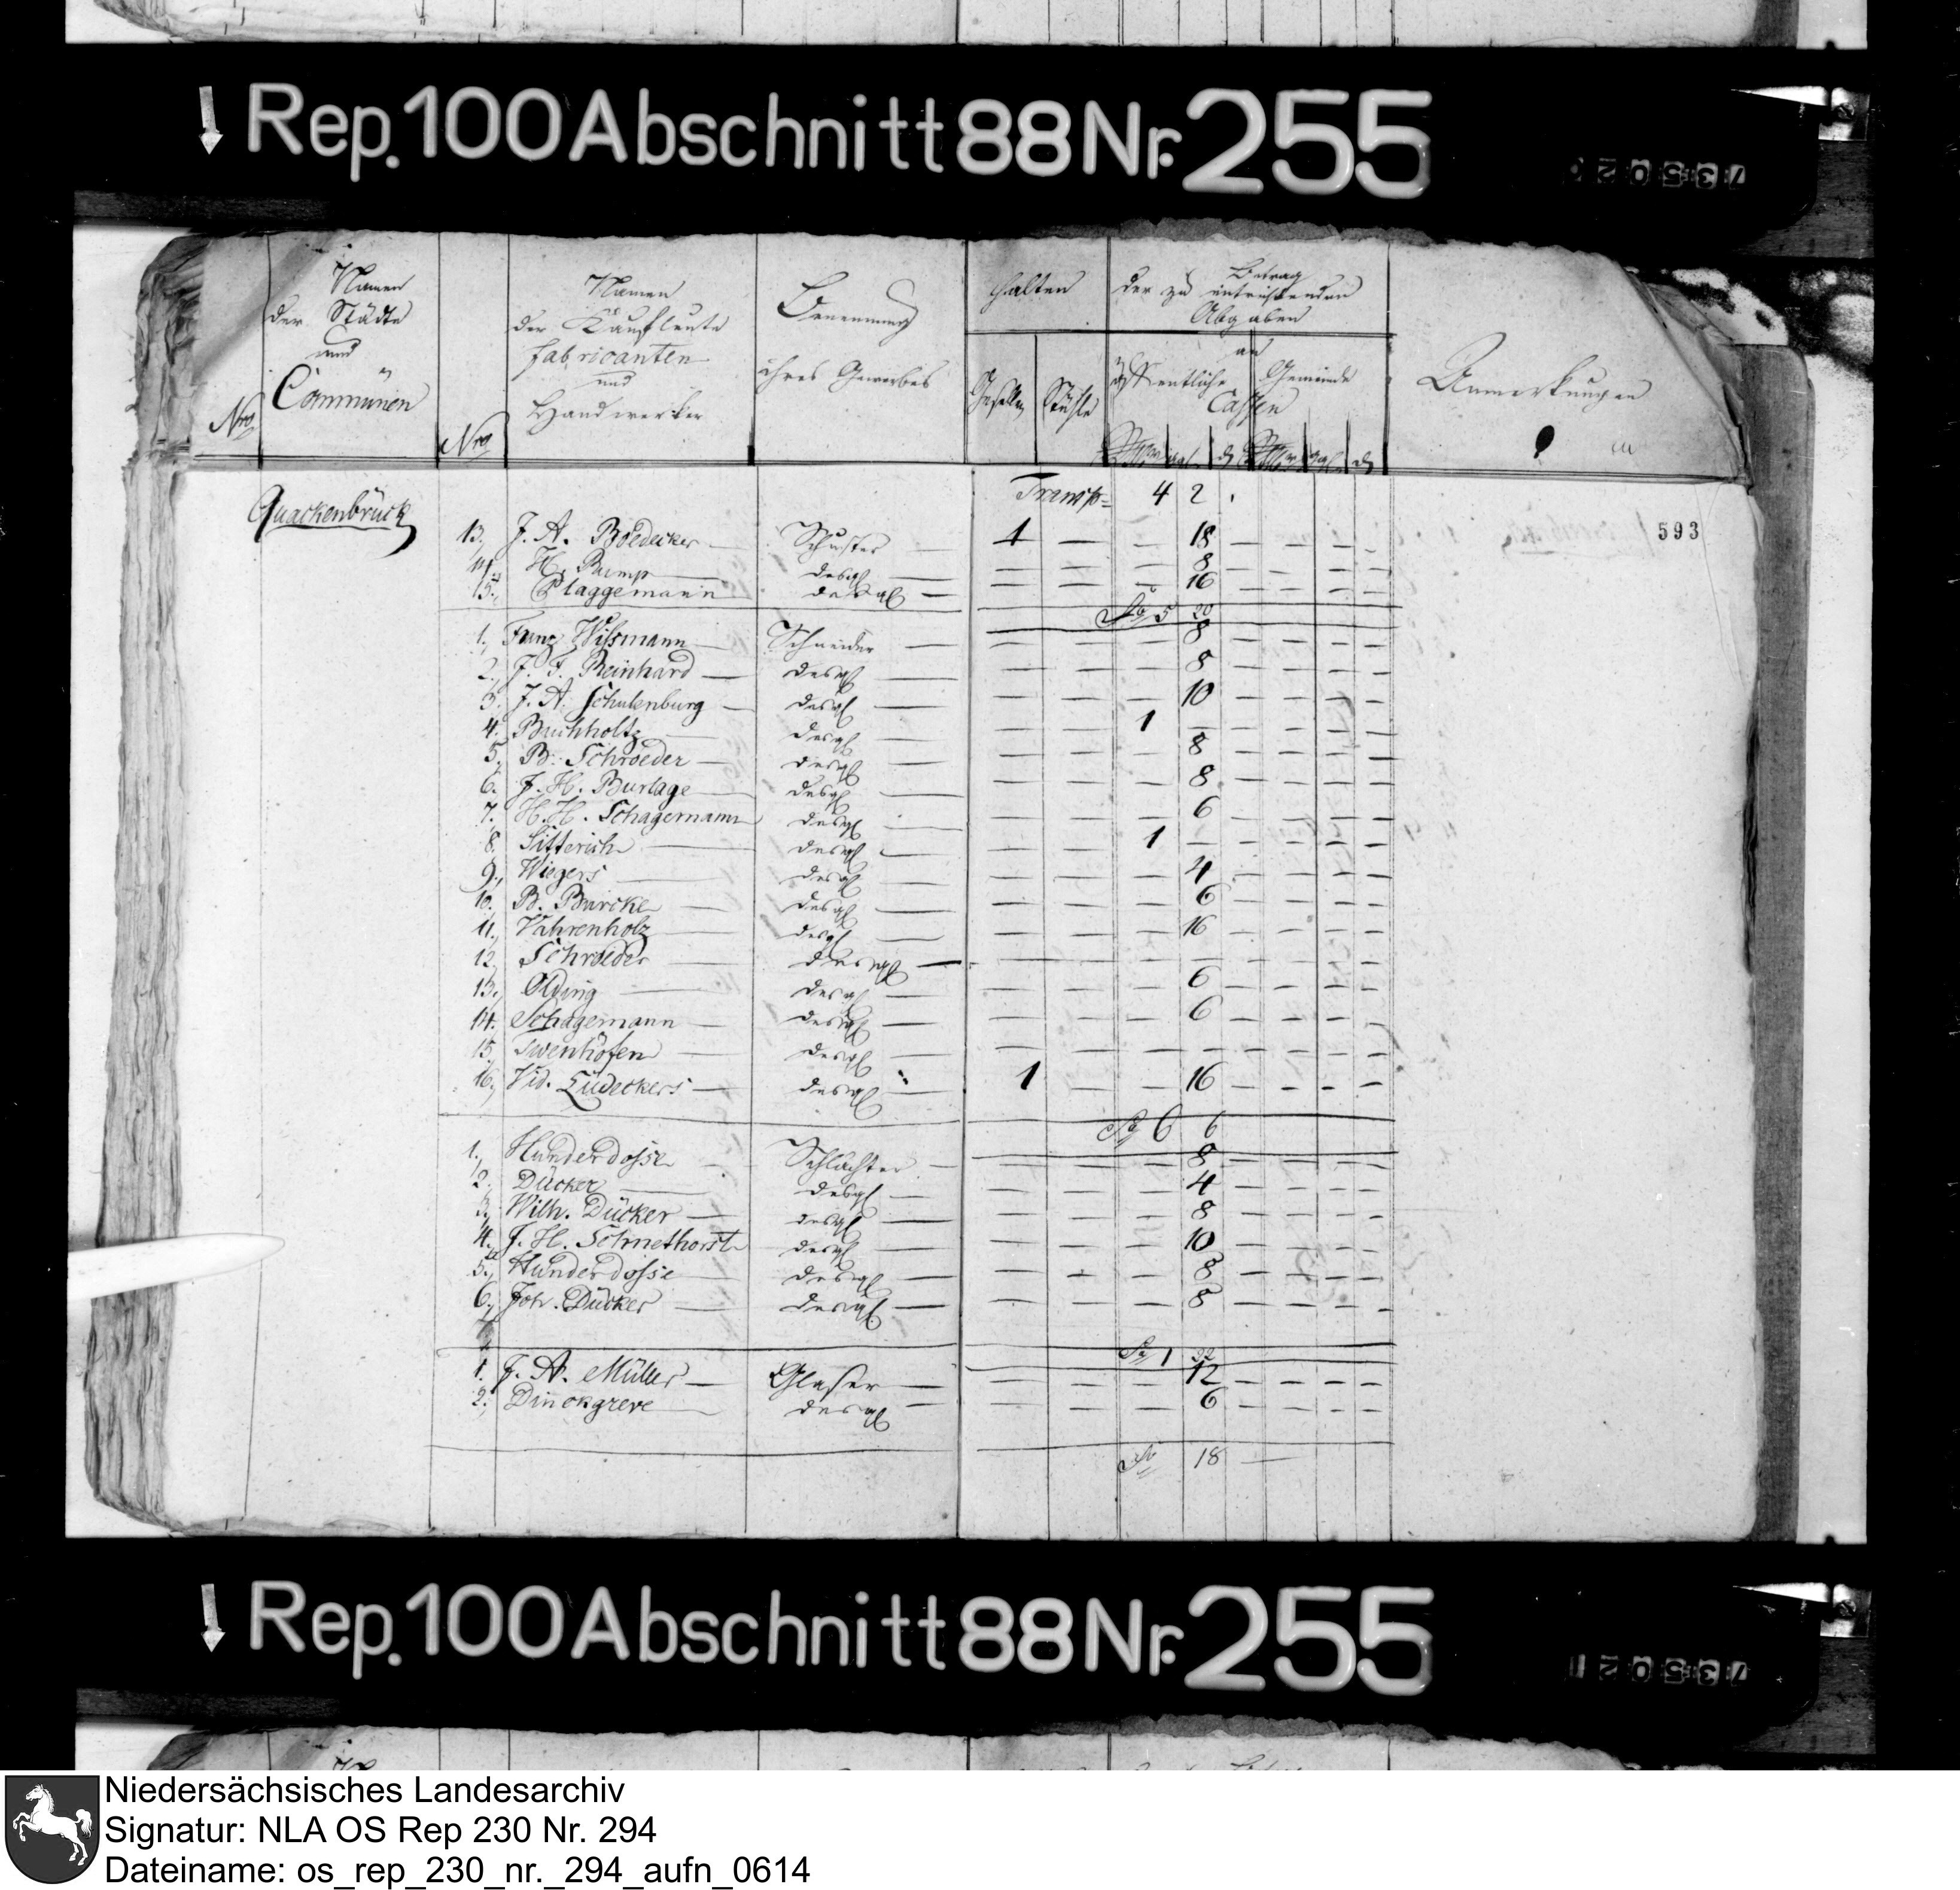 Rep. 100 Abschnitt 88 Nr. 255
Nro
Namen der Städte und Communen
Nro
Namen der Kaufleute fabricanten und Handwerker
Benennung ihres Gewerbes
halten
Gesellen
Stühle
Betrag der zu entrichtenden Abgaben
an
öffentliche
Gemeinde
Cassen
Anmerkungen
593
Quackenbrück
Transp. 4 2
13. J. A. Boedecker — Schuster — 1 — — 18 — — — —
14. H. Bump — desgl — — — — 8 — — — —
15. Plaggemann desgl — — — — 16 — — — —
Sa 5 20
1. Franz Wissmann Schneider — — — — 8 — — — —
2. J. F. Reinhard — desgl — — — — 8 — — — —
3. J. A. Schulenburg — desgl — — — — 10 — — — —
4. Buchholtz — desgl — — — 1 — — — — —
5. B. Schroeder — desgl — — — — 8 — — — —
6. J. H. Burlage — desgl — — — — 8 — — — —
7. H. H. Schagemann desgl — — — — 6 — — — —
8. Sitterich — desgl — — — 1 — — — — —
9. Wiegers — desgl — — — — 4 — — — —
10. B. Burcke — desgl — — — — 6 — — — —
11. Vahrenholz — desgl — — — — 16 — — — —
12. Schroeder — desgl — — — — — — — — —
13. Olding — desgl — — — — 6 — — — —
14. Schagemann — desgl — — — — 6 — — — —
15. Swenhöfen — desgl — — — — — — — — —
16. Vid. Lüdeckers — desgl — 1 — — 16 — — — —
Sa 6 6
1. Hunderdosse — Schlachter — — — — 8 — — — —
2. Dücker — desgl — — — — 4 — — — —
3. Wilh. Dücker — desgl — — — — 8 — — — —
4. J. H. Schmethorst desgl — — — — 10 — — — —
5. Hunderdosse — desgl — — — — 8 — — — —
6. Joh. Dücker — desgl — — — — 8 — — — —
Sa 1 22
1. J. A. Müller — Glaser — — — — 12 — — — —
2. Dinckgreve — desgl — — — — 6 — — — —
Sa 18 —
Rep. 100 Abschnitt 88 Nr. 255
Niedersächsisches Landesarchiv
Signatur: NLA OS Rep 230 Nr. 294
Dateiname: os_rep_230_nr._294_aufn_0614